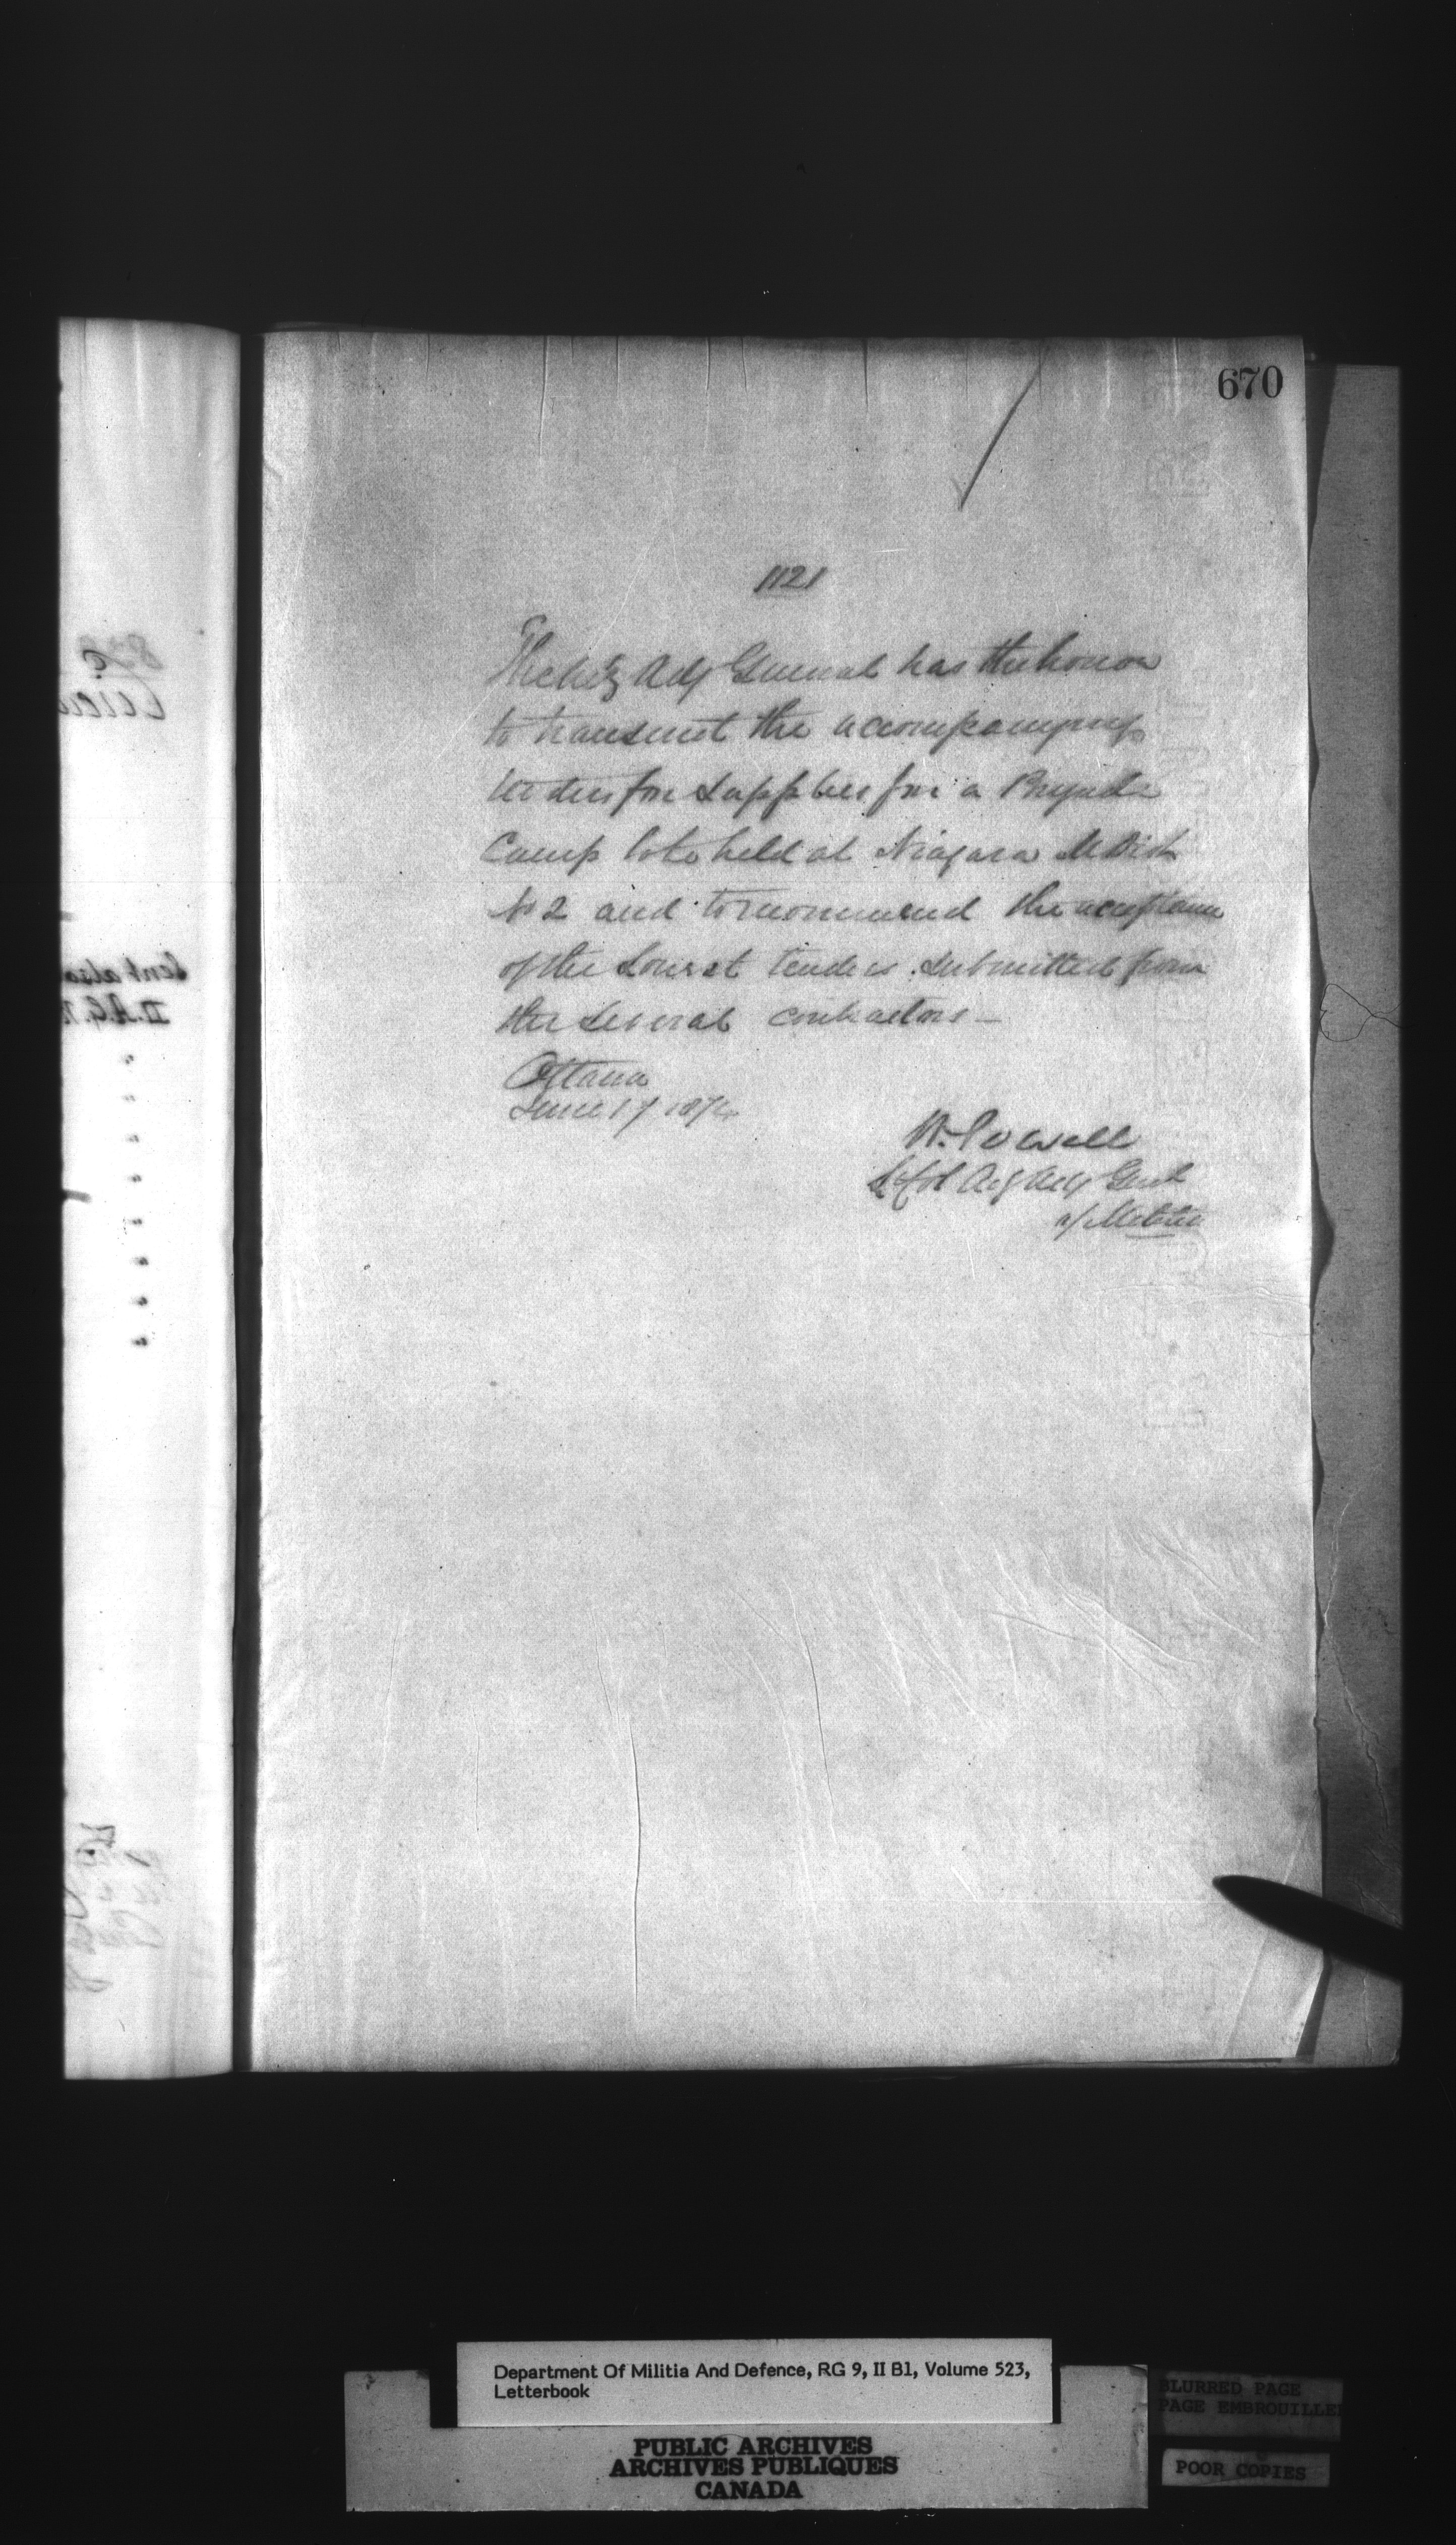 670
1121
The Acty Adj General has the honor
to transmit the accompanying
tenders for supplies for a Brigade
Camp to be held at Niagara M Dist
No 2 and to recommend the acceptance
of the lowest tenders submitted from
the several contractors —
Ottawa
June 17 1874
W. Powell
Lt Col Actg Adj Genl
of Militia
Sent also
D.A.G.
Department Of Militia And Defence, RG 9, II B1, Volume 523,
Letterbook
PUBLIC ARCHIVES
ARCHIVES PUBLIQUES
CANADA
BLURRED PAGE
PAGE EMBROUILLEE
POOR COPIES